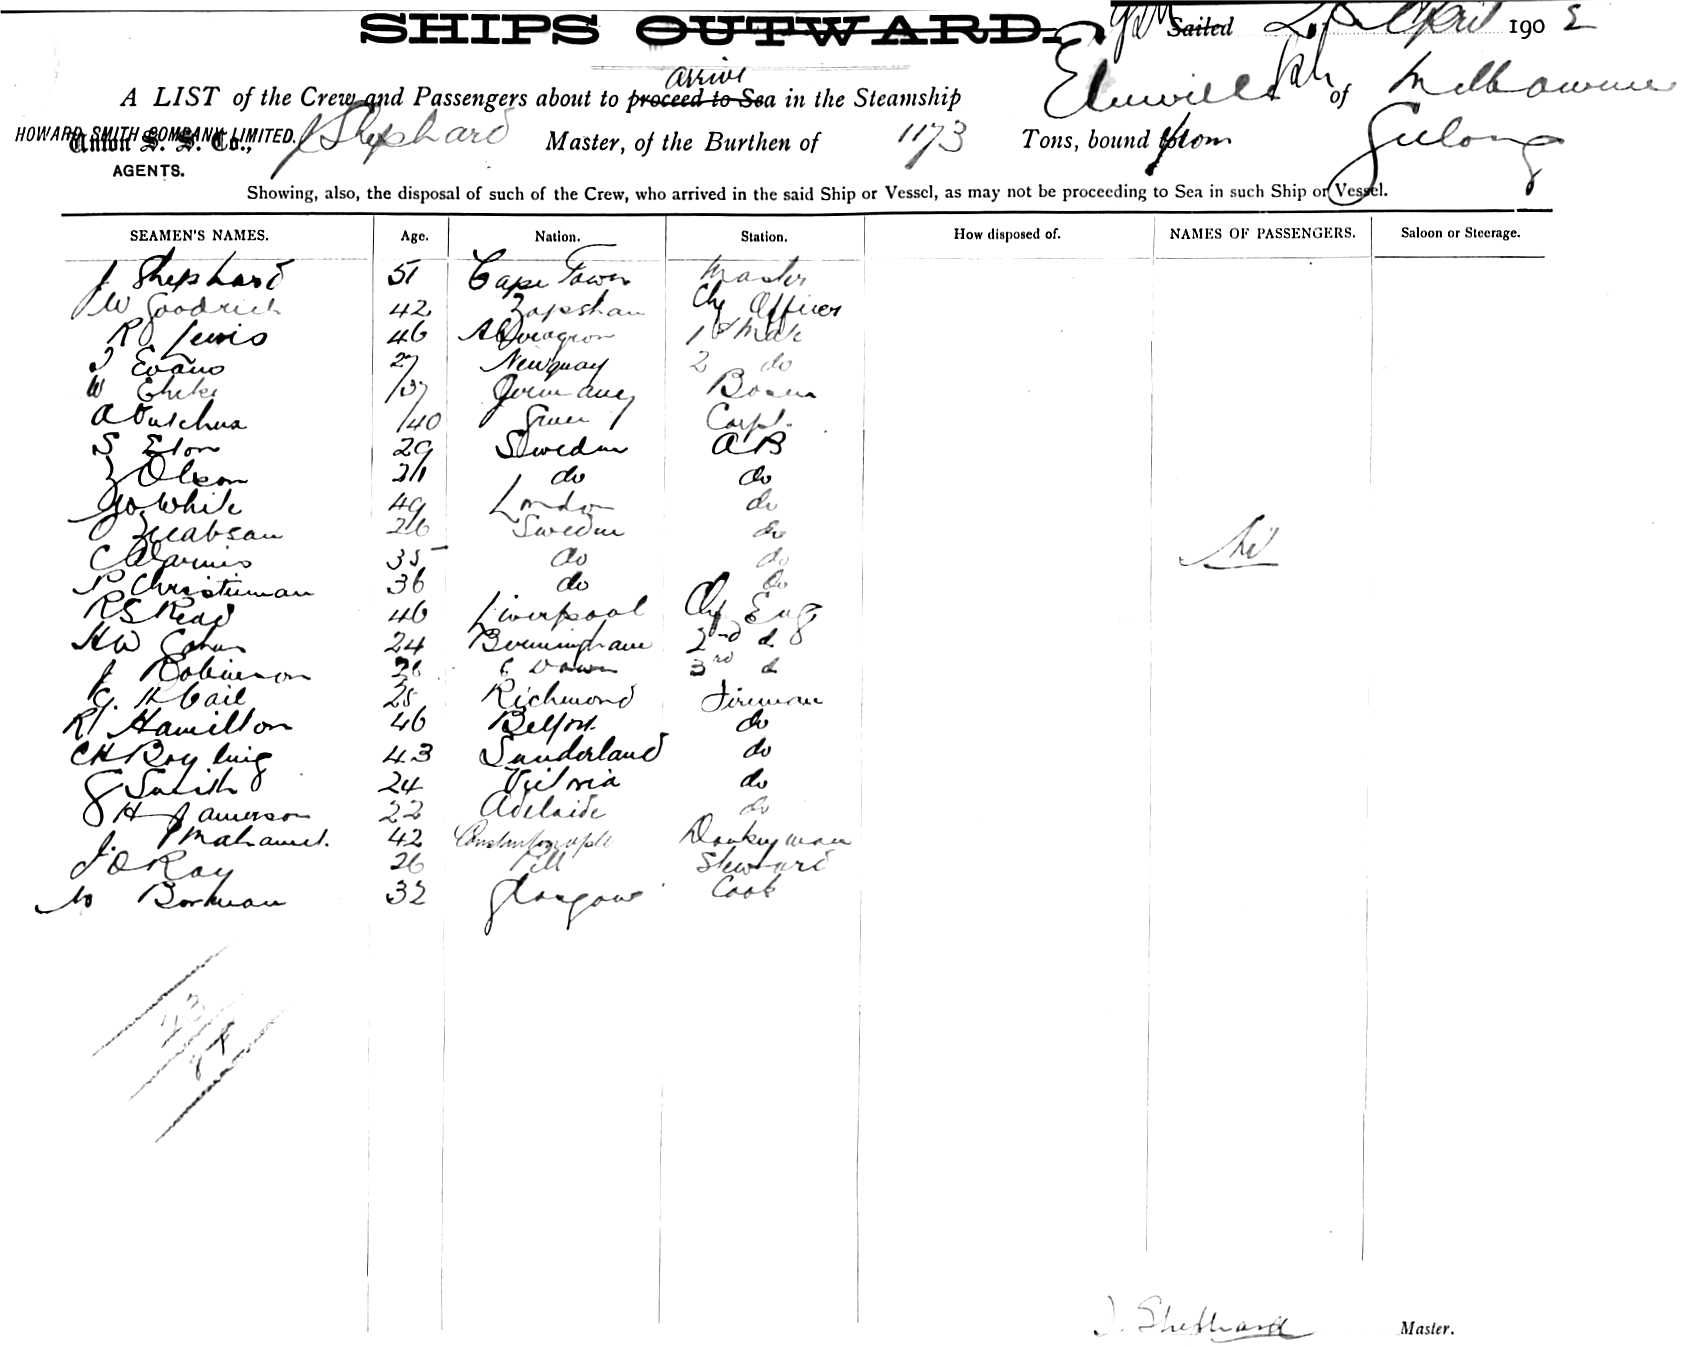 SHIPS OUTWARD.
Sailed April 1902
arrive
A LIST of the Crew and Passengers about to proceed to Sea in the Steamship of Melbourne
HOWARD SMITH COMPANY LIMITED.
Union S. S. Co., J Shephard Master, of the Burthen of 1173 Tons, bound from Geelong
AGENTS.
Showing, also, the disposal of such of the Crew, who arrived in the said Ship or Vessel, as may not be proceeding to Sea in such Ship or Vessel.
SEAMEN'S NAMES. Age. Nation. Station. How disposed of. NAMES OF PASSENGERS. Saloon or Steerage.
J Shephard 51 Cape Town Master
W Goodrich 42 Ch Officer
R Lewis 46 1st Mate
J Evans 27 Newquay 2 do
W 37 Germany Bosun
A 40 Carpt.
S Elon 29 Sweden AB
Olson 21 do do
White 49 London do
26 Sweden do
C 35 do do
P Christieman 36 do do
R S Read 46 Liverpool Ch Eng
H W 24 Birmingham 2nd d
J Robinson 3rd d
G. H Cail 28 Richmond Fireman
R Hamilton 46 Belfast do
C H Boyling 43 Sunderland do
G Smith 24 Victoria do
H Jamerson 22 Adelaide do
J. Mahamet. 42 Constantinople Donkeyman
J O Ray 26 Steward
W Borman 32 Glasgow Cook
Nil
23
J. Shephard Master.